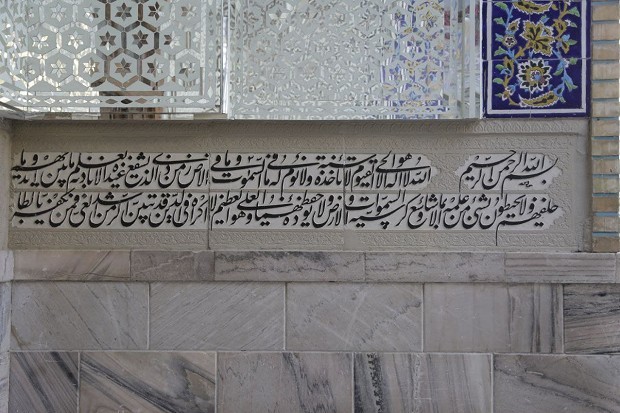 بسم الله الرحمن الرحيم الله لا اله الا هو الحى القيوم لا تاخذه سنة ولا نوم له ما فى السموات وما فى الارض من ذى الذى يشفع عنده الا باذنه يعلم ما بين ايديهم وما
خلفهم ولا يحيطون بشئ من علمه الا بما شاء وسع كرسيه السموات والارض ولا يؤده حفظهما وهو العلى العظيم لا اكراه فى الدين قد تبين الرشد من الغى فمن يكفر بالطا